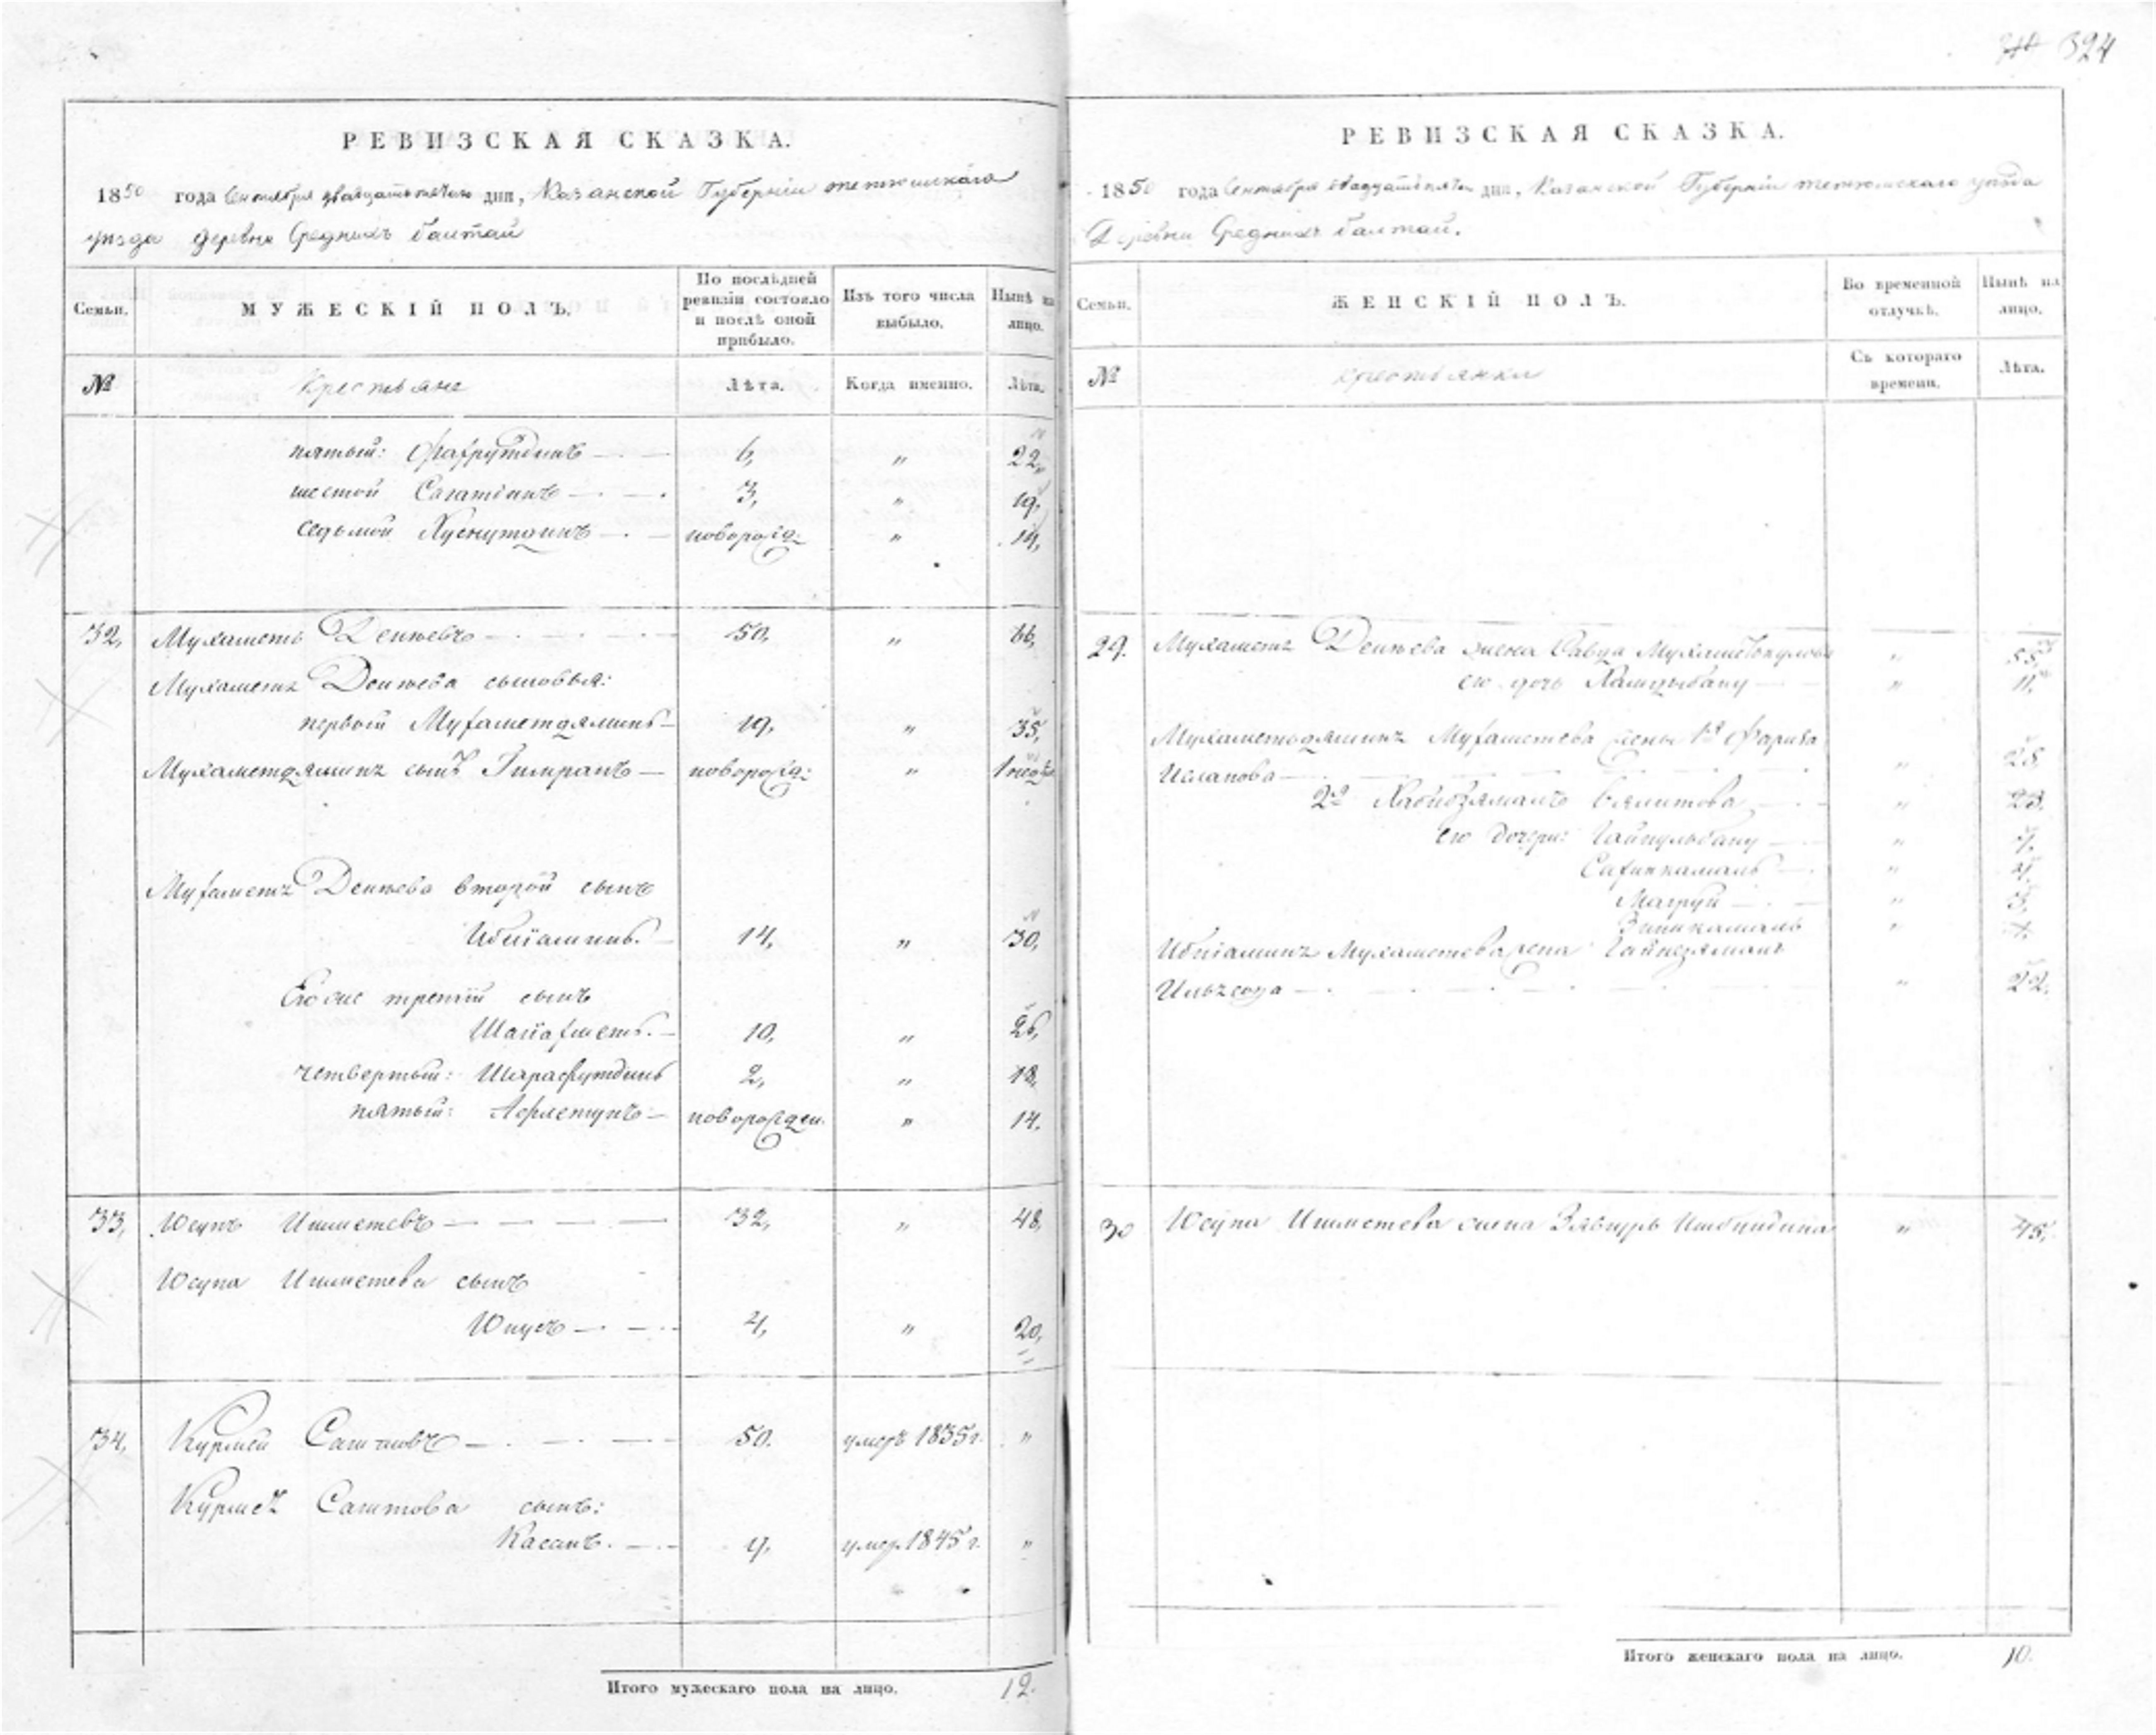 324
РЕВИЗСКАЯ СКАЗКА.
1850 года Сентября двадцать пятаго дня, Казанской Губерніи тетюшскаго
уѣзда деревни Среднихъ балтай
Семьи.
МУЖЕСКІЙ ПОЛЪ.
По послѣдней ревизіи состояло и послѣ оной прибыло.
Изъ того числа выбыло.
Нынѣ на лицо.
№
Крестьяне
Лѣта.
Когда именно.
Лѣта.
пятый: Фахрутдинъ 6, " 22,
шестой Сагатдинъ 3, " 19,
седьмой Хуснутдинъ новорожд: " 14,
32, Мухаметъ Деніевъ 50, " 66,
Мухаметъ Деніева сыновья:
первый Мухаметдяминъ 19, " 35,
Мухаметдяминъ сынъ Гимранъ новорожд: "
Мухаметъ Деніева второй сынъ
Ибніаминъ. 14, " 30,
Его же третій сынъ
Шагіахметъ. 10, " 26,
четвертый: Шарафутдинъ 2, " 18,
пятый: новорожден. " 14.
33, Юсупъ Ишметевъ 32, " 48,
Юсупа Ишметева сынъ
Юнусъ 4, " 20,
34, Курмей Сагитовъ 50. умеръ 1835 г. "
Сагитова сынъ:
Хасанъ. 9, умер. 1845 г. "
Итого мужескаго пола на лицо. 12.
РЕВИЗСКАЯ СКАЗКА.
1850 года Сентября двадцать пятаго дня, Казанской Губерніи тетюшскаго уѣзда
Деревни Среднихъ балтай.
Семьи.
ЖЕНСКІЙ ПОЛЪ.
Во временной отлучкѣ.
Нынѣ на лицо.
№
крестьянки
Съ котораго времени.
Лѣта.
29. Мухаметъ Деніева жена Мухаметкулова " 55,
его дочь " 11.
Мухаметьдяминъ Мухаметева жены 1я Фариза
" 25,
2я " 23.
его дочери: Гайнульбану "
Сафинкамалъ " 4.
Магруй " 3,
Зиникамалъ "
Ибніаминъ Мухаметева жена Гайнезяманъ
" 22.
30 Юсупа Ишметева жена " 45,
Итого женскаго пола на лицо. 10.